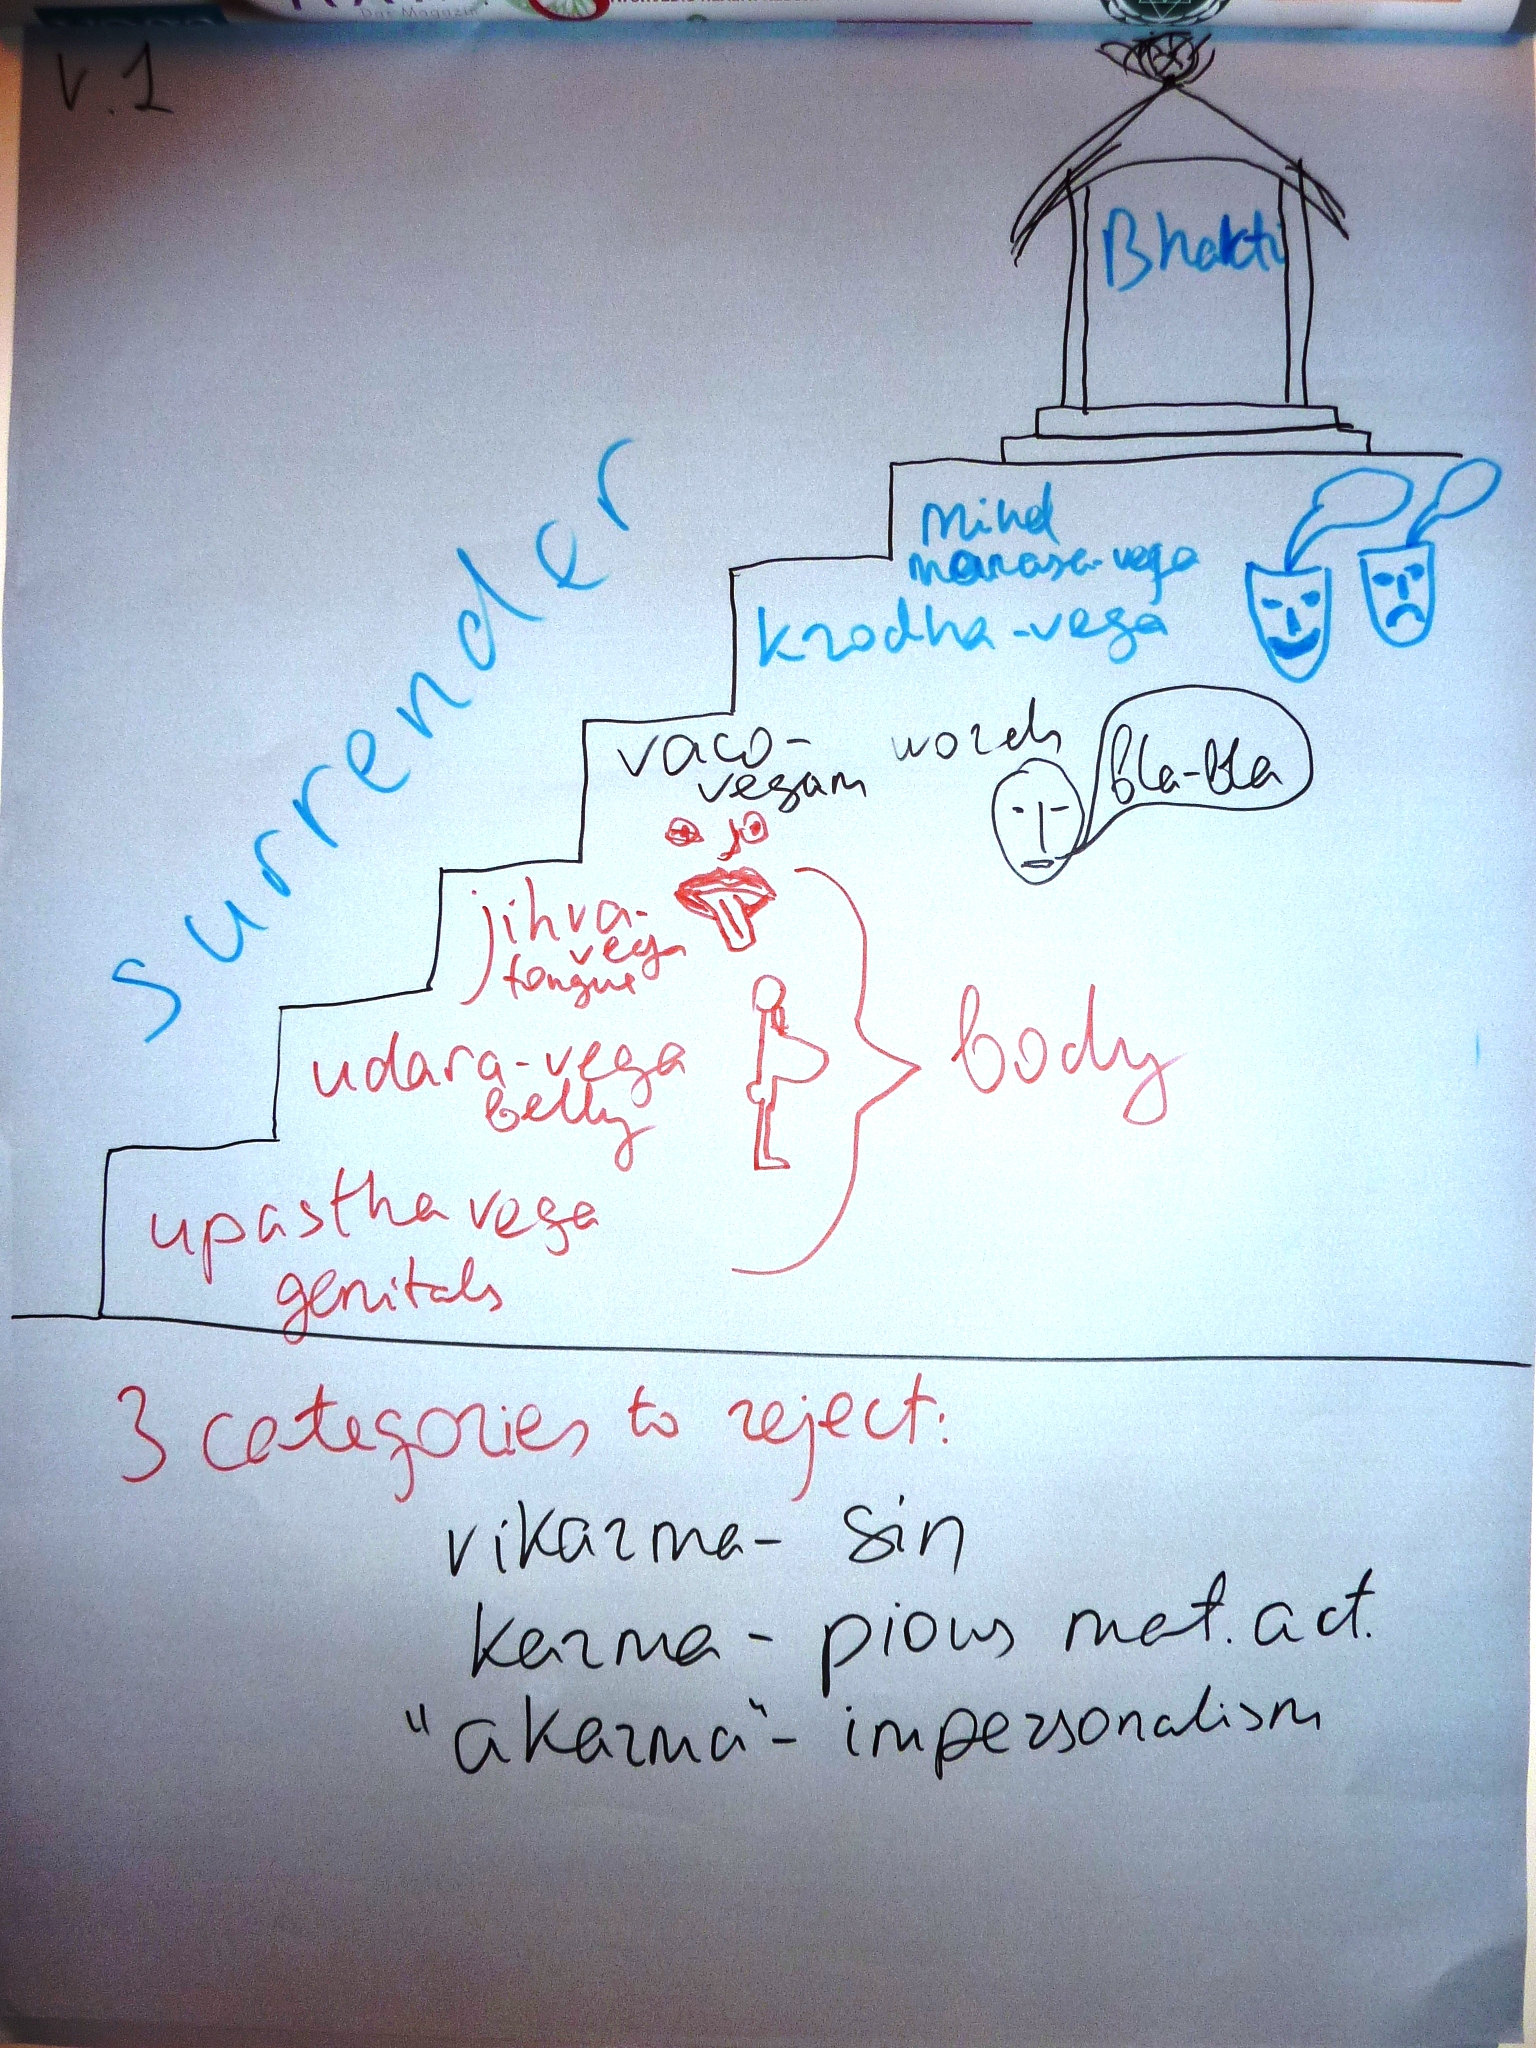 Das Magazin
v.1
Bhakti
surrender
mind
manasa-vega
krodha-vega
vaco-
vegam
words
bla-bla
jihva-
vega
tongue
body
udara-vega
belly
upastha vega
genitals
3 categories to reject:
vikarma - sin
karma - pious mat. act.
"akarma" - impersonalism